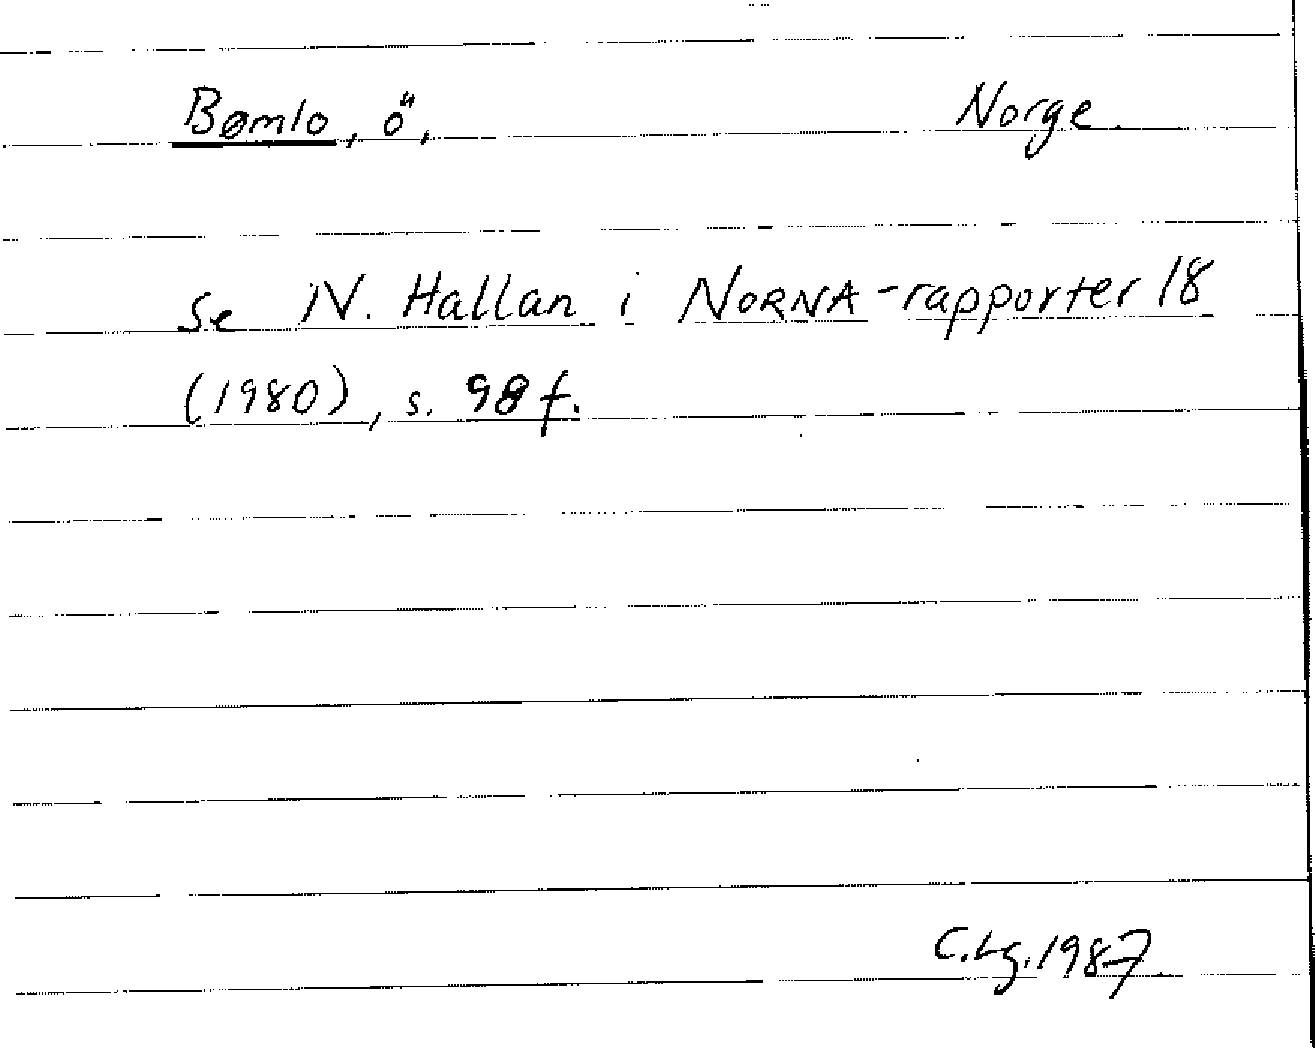 Bømlo, ö, Norge.
se N. Hallan i NORNA-rapporter 18
(1980), s. 98 f.
C.Lg. 1987